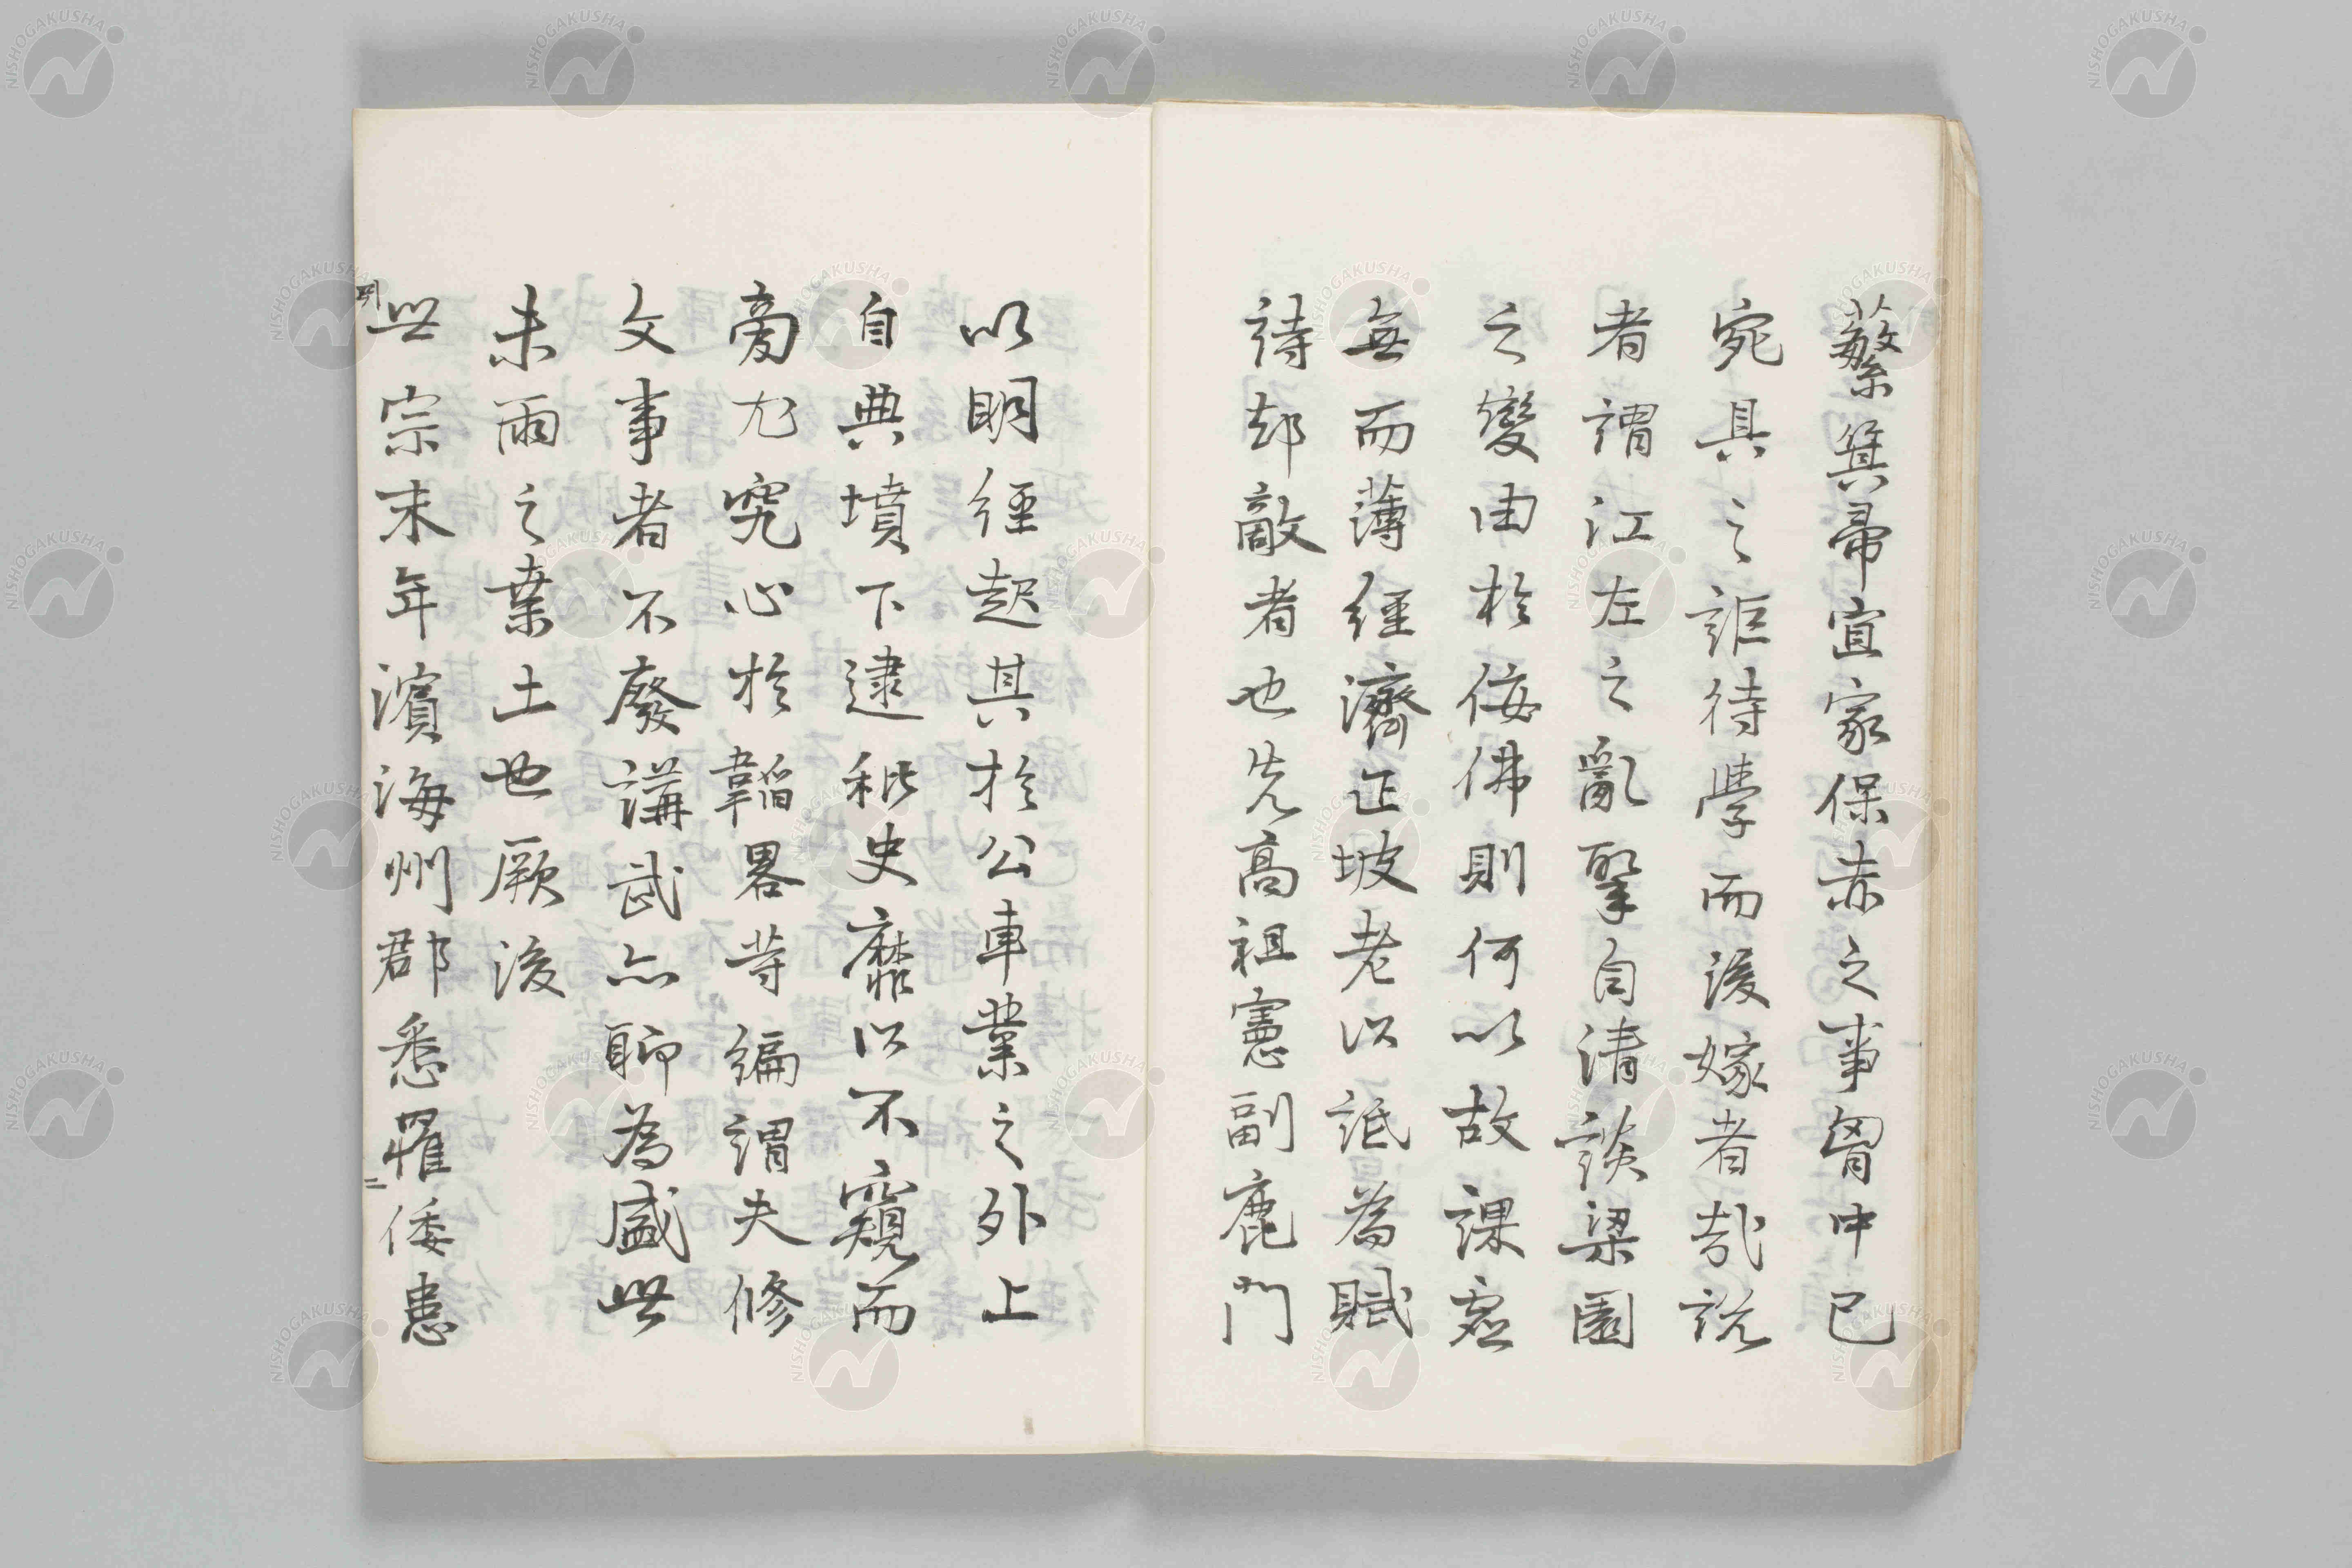 蘩箕帚宜家保赤之事胷中已
宛具之詎待學而後嫁者哉説
者謂江左之亂肇自清談梁園
之變由於侫佛則何以故課虚
無而薄經濟正坡老以詆為賦
詩却敵者也先高祖憲副鹿門
以明經起其於公車業之外上
自典墳下逮秕史靡以不窺而
旁尤究心於韜畧等編謂夫修
文事者不廢講武亦聊為盛世
未雨之葉土也厥後
世宗末年濱海州郡悉罹倭患
NISHOGAKUSHA